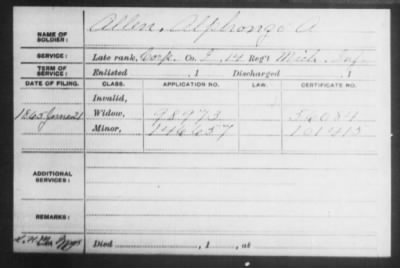 NAME OF SOLDIER: Allen, Alphonzo A
SERVICE: Late rank, Corp. Co. I, 14 Reg't Mich. Inf.
TERM OF SERVICE: Enlisted , 1 Discharged , 1
DATE OF FILING. CLASS. APPLICATION NO. LAW. CERTIFICATE NO.
Invalid,
1865 June 21 Widow, 98973 56084
Minor, 146657 101415
ADDITIONAL SERVICES:
REMARKS:
Died , 1 , at